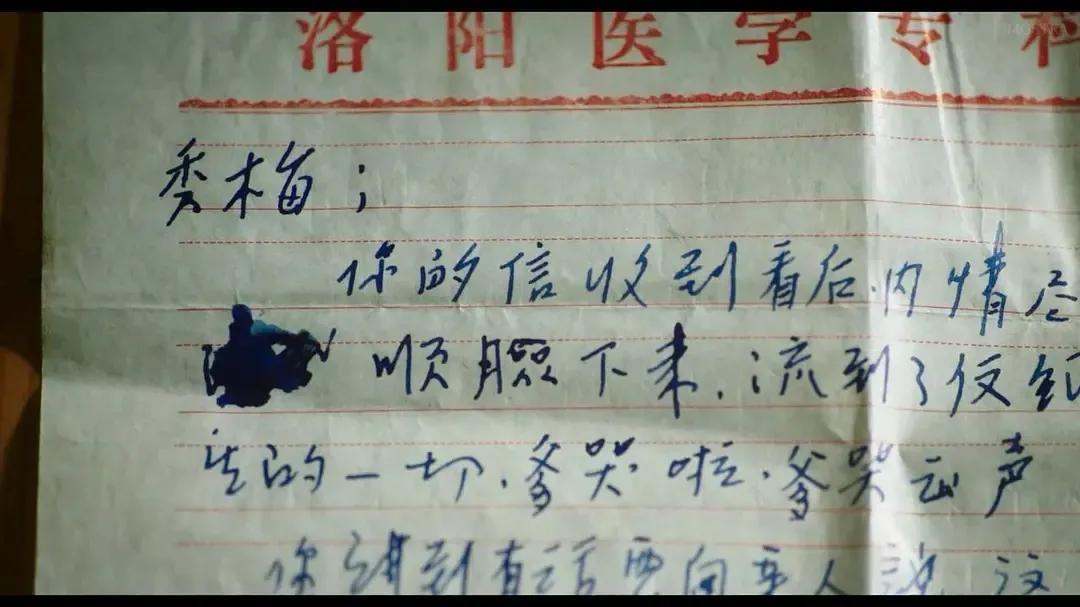 洛阳医学专科
秀梅；
你的信收到看后.内情尽
顺脸下来.流到了
的一切.爹哭啦.爹哭出声
你讲到有话要向亲人说.这